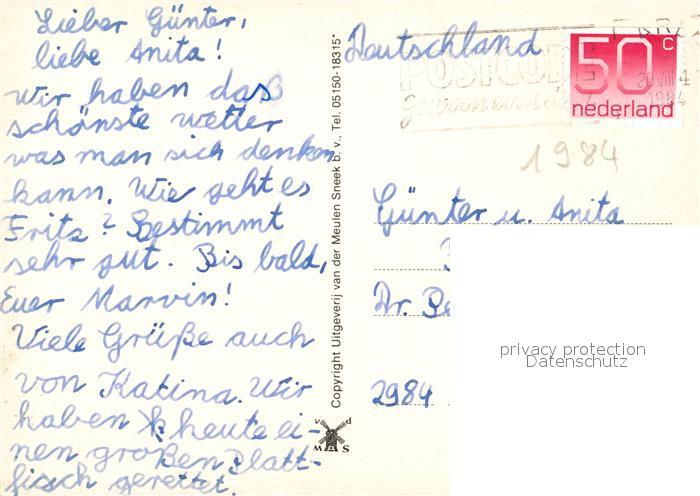 Lieber Günter,
liebe Anita!
Wir haben das
schönste wetter
was man sich denken
kann. Wie geht es
Fritz? Bestimmt
sehr gut. Bis bald,
Euer Marvin!
Viele Grüße auch
von Katina. Wir
haben heute ei-
nen großen Platt-
fisch gerettet.
Copyright Uitgeverij van der Meulen Sneek b.v., Tel. 05150-18315*
v d
M S
Deutschland
POSTCODE
gewoon even
20 VIII
1984
50 c
nederland
1984
Günter u. Anita
Dr.
2984
privacy protection
Datenschutz